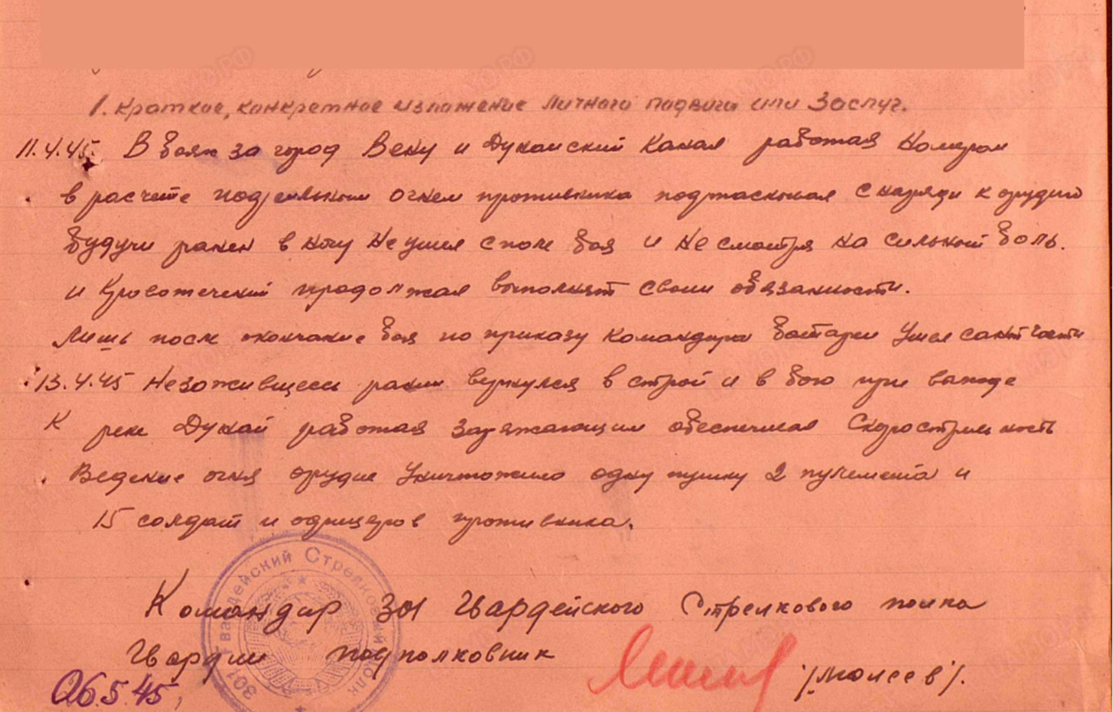 1. Краткое, конкретное изложение личного подвига или заслуг.
11.4.45 В боях за город Вену и Дунайский канал работая номером
в расчете под сильным огнем противника подтаскивая снаряди к орудию
будучи ранен в ногу не ушел с поле боя и не смотря на сильной боль.
и кровотечений продолжал выполнят своии обязанности.
Лишь после окончание боя по приказу командира батареи ушел санчасти
13.4.45 Незажившеси рании вернулся в строй и в бою при выходе
К реке Дунай работая заряжающим обеспечивая скорострельность
Ведение огня орудие уничтожило одну пушку 2 пулемета и
15 солдат и офицеров противника.
Командир 301 Гвардейского Стрелкового полка
Гвардии подполковник /Моисеев/.
06.5.45
301 Гвардейский Стрелковый полк